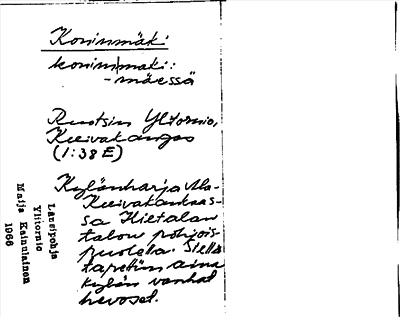 Koninmäki
koninmäki:
-mäessä
Ruotsin Ylitornio,
Kuivakangas
(1:38 E)
Kylänharja Ala-
Kuivakankaas-
sa Hietalan
talon pohjois-
puolella. Siellä
tapettiin aina
kylän vanhat
hevoset.
Länsipohja
Ylitornio
Maija Kainulainen
1966